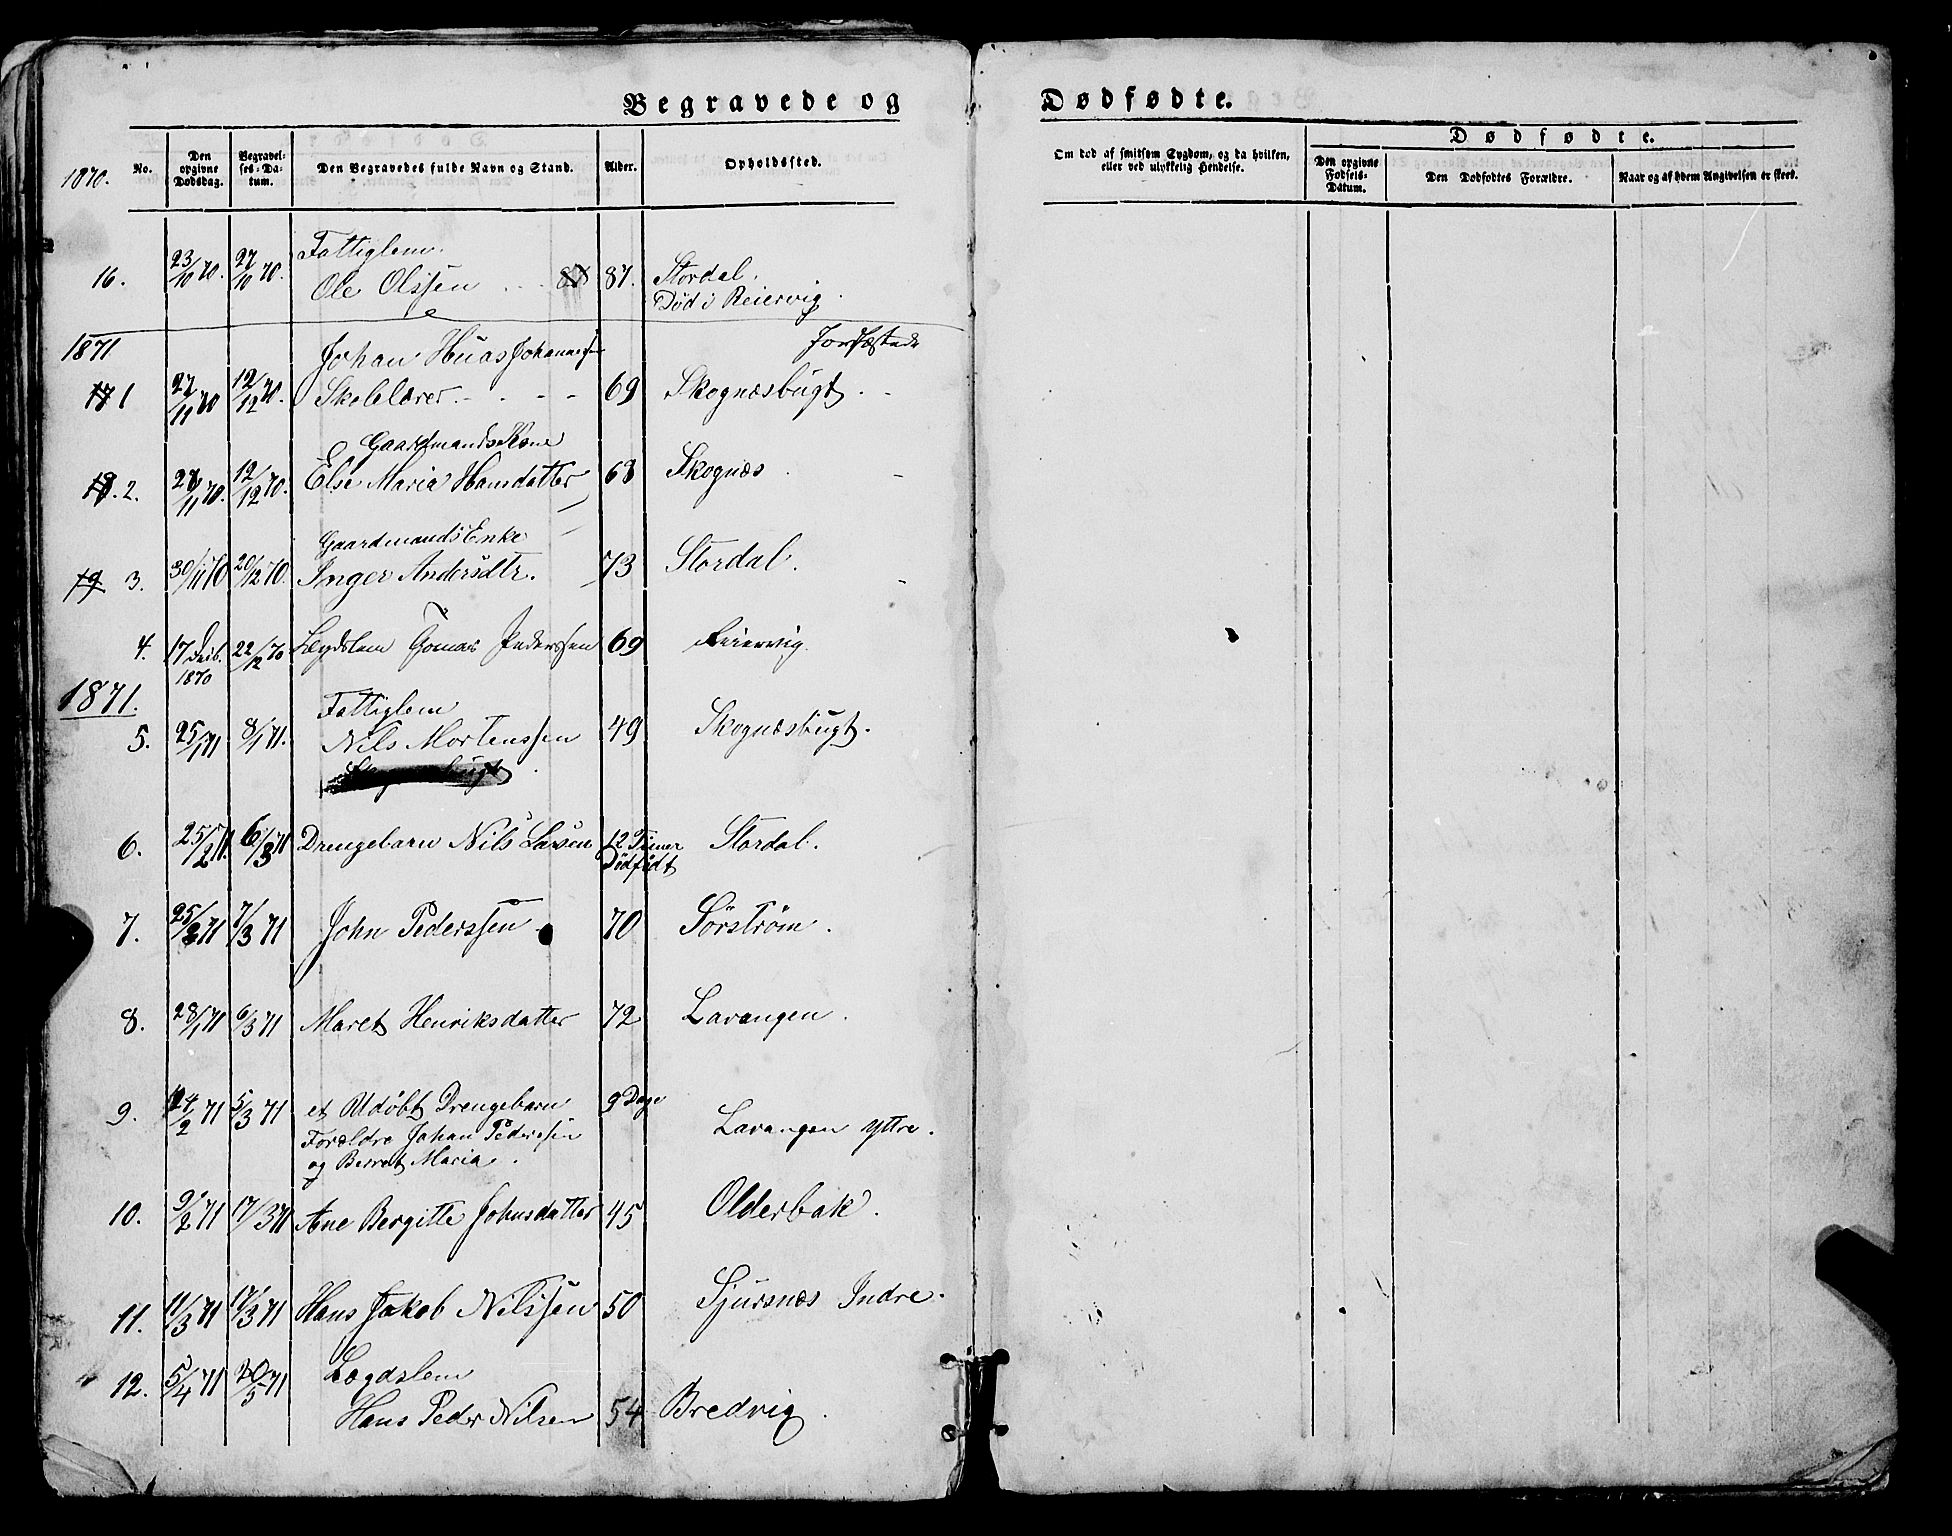 Begravede og Dødfødte.
1870.
No.
Den opgivne Dødsdag.
Begravelses-Datum.
Den Begravedes fulde Navn og Stand.
Alder.
Opholdssted.
Om død af smitsom Sygdom, og da hvilken, eller ved ulykkelig Hendelse.
Dødfødte.
Den opgivne Fødsels-Datum.
Den Dødfødtes Forældre.
Naar og af hvem Angivelsen er skeed.
Fattiglem
16. 23/10 70. 27/10 70. Ole Olssen 87. Stordal.
Død i Reiervig.
1871 Jordfæstede
Johan Johannessen
17 1 27/11 70 12/12 70. Skolelærer 69 Skognæsbugt.
Gaardmands Kone
18. 2. 27/11 70. 12/12 70. Else Maria Hansdatter 68 Skognæs
Gaardmands Enke
19 3. 30/11 70 20/12 70. Inger Andersdtr. 73 Stordal.
4. 17 Decb. 1870 22/12 70 Lægdslem Tomas Pederssen 69 Reiervig.
1871.
Fattiglem
5. 25/1 71 8/1 71. Nils Mortenssen 49 Skognæsbugt.
6. 25/2 71. 6/3 71 Drengebarn Nils Larsen 12 Timer Stordal.
Dødfødt
7. 25/2 71 7/3 71 John Pederssen 70 Sørstrøm.
8. 28/1 71 6/3 71 Maret Henriksdatter 72 Lavangen.
9. 24/2 71 5/3 71 et Udøbt Drengebarn 9 Dage Lavangen yttre.
Forældre Johan Pederssen
og Berret Maria.
10. 9/2 71 17/3 71 Ane Bergitte Johnsdatter 45 Olderbak.
11. 11/3 71 17/3 71 Hans Jakob Nilssen 50 Sjursnæs Indre.
Lægdslem
12. 5/4 71 20/5 71 Hans Peder Nilsen 54 Bredvig.